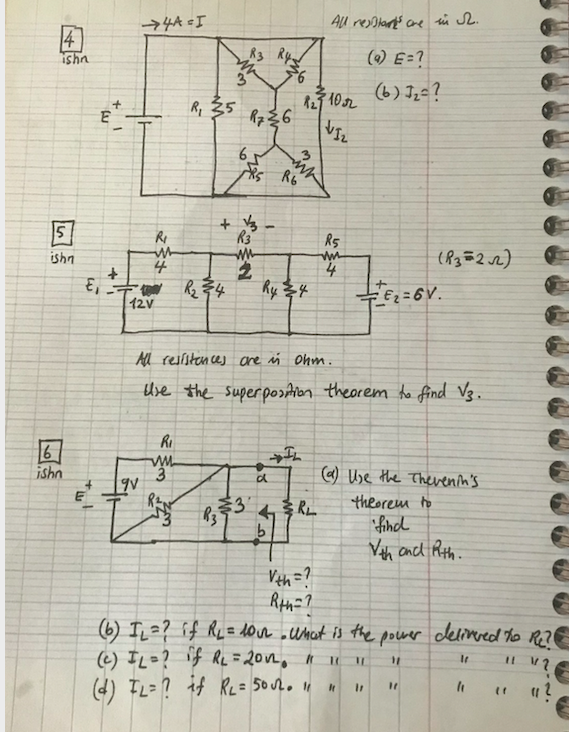 4
ishn
→4A = I
All resistances are in Ω.
(a) E=?
(b) I2=?
E
+
-
R1
5
R3
3
R4
6
R7
6
R2
10Ω
↓I2
6
R5
3
R6
5
ishn
+ V3 -
R1
4
R3
2
R5
4
(R3=2Ω)
E1
+
-
12V
R2
4
R4
4
+
-
E2=6V.
All resistances are in ohm.
Use the superposition theorem to find V3.
6
ishn
R1
3
→IL
a
E
+
-
9V
R2
3
R3
3
RL
b
(a) Use the Thevenin's
theorem to
find
Vth and Rth.
Vth=?
Rth=?
(b) IL=? if RL=10Ω. What is the power delivered to RL?
(c) IL=? if RL=20Ω. " " " " " " "?
(d) IL=? if RL=50Ω. " " " " " " "?